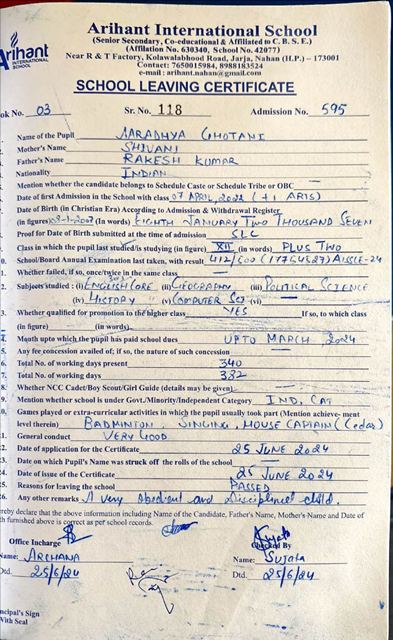 Arihant International School
(Senior Secondary, Co-educational & Affiliated to C. B. S. E.)
(Affilation No. 630340, School No. 42077)
Near R & T Factory, Kolawalabhood Road, Jarja, Nahan (H.P.) – 173001
Contact: 7650015984, 8988183524
e-mail : arihant.nahan@gmail.com
Arihant
INTERNATIONAL
SCHOOL
SCHOOL LEAVING CERTIFICATE
ok No. 03 Sr. No. 118 Admission No. 595
Name of the Pupil AARADHYA GHOTANI
Mother's Name SHIVANI
Father's Name RAKESH KUMAR
Nationality INDIAN
Mention whether the candidate belongs to Schedule Caste or Schedule Tribe or OBC —
Date of first Admission in the School with class 07 APRIL, 2022 (+1 ARTS)
Date of Birth (in Christian Era) According to Admission & Withdrawal Register
(in figures) 08-1-2007 (In words) EIGHTH JANUARY TWO THOUSAND SEVEN
Proof for Date of Birth submitted at the time of admission SLC
Class in which the pupil last studied/is studying (in figure) XII (in words) PLUS TWO
0. School/Board Annual Examination last taken, with result 412/500 (17764527) AISSCE-24
1. Whether failed, if so, once/twice in the same class —
2. Subjects studied : (i) ENGLISH CORE (ii) GEOGRAPHY (iii) POLITICAL SCIENCE
(iv) HISTORY (v) COMPUTER SCI (vi) —
3. Whether qualified for promotion to the higher class YES If so, to which class
(in figure) — (in words) —
4. Month upto which the pupil has paid school dues UPTO MARCH, 2024
5. Any fee concession availed of; if so, the nature of such concession —
6. Total No. of working days present 340
7. Total No. of working days 382
8. Whether NCC Cadet/Boy Scout/Girl Guide (details may be given) —
9. Mention whether school is under Govt./Minority/Independent Category IND. CAT
0. Games played or extra-curricular activities in which the pupil usually took part (Mention achieve- ment
level therein) BADMINTON, SINGING, HOUSE CAPTAIN (Cedar)
1. General conduct VERY GOOD
2. Date of application for the Certificate 25 JUNE 2024
3. Date on which Pupil's Name was struck off the rolls of the school —
4. Date of issue of the Certificate 25 JUNE 2024
5. Reasons for leaving the school PASSED
6. Any other remarks A very obedient and disciplined child.
reby declare that the above information including Name of the Candidate, Father's Name, Mother's Name and Date of
h furnished above is correct as per school records.
Office Incharge Checked By
Name: ARCHANA Name: Sujata
Dtd. 25/6/24 Dtd. 25/6/24
ncipal's Sign
With Seal